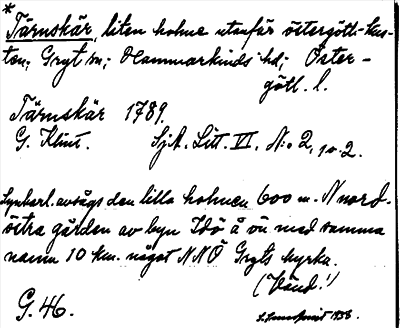 *
Tärnskär, liten holme utanför östergöt-kus-
ten; Gryt sn; Hammarkinds hd; Öster-
götl. l.
Tärnskär 1789.
G. Klint. SjA. Litt. VI. N:o 2, 
avsågs den lilla holmen 600 m. N nord-
östra gården av byn Idö å ön med samma
namn 10 km. något NNÖ Gryts kyrka.
(Vänd!)
G. 46. 1938.